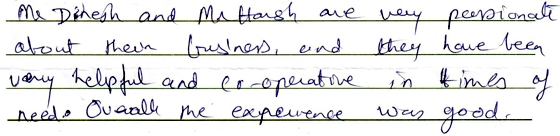 Mr Dinesh and Mr Harsh are very passionate
about their business, and they have been
very helpful and co-operative in times of
need. Overall the experience was good.